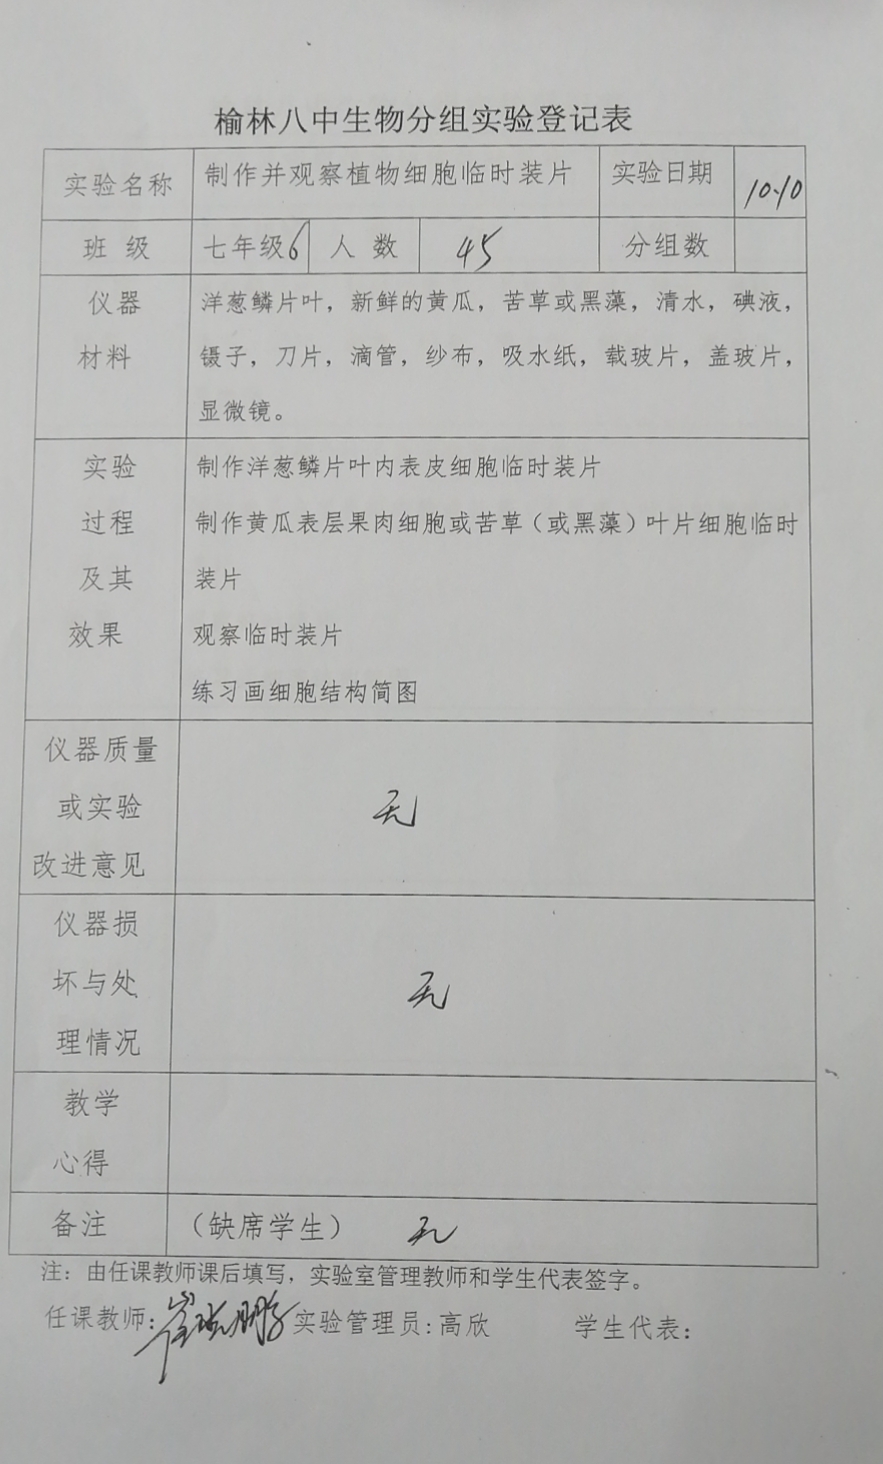 榆林八中生物分组实验登记表
实验名称 制作并观察植物细胞临时装片 实验日期 10.10
班 级 七年级6 人 数 45 分组数
仪器 洋葱鳞片叶，新鲜的黄瓜，苦草或黑藻，清水，碘液，
材料 镊子，刀片，滴管，纱布，吸水纸，载玻片，盖玻片，
显微镜。
实验 制作洋葱鳞片叶内表皮细胞临时装片
过程 制作黄瓜表层果肉细胞或苦草（或黑藻）叶片细胞临时
及其 装片
效果 观察临时装片
练习画细胞结构简图
仪器质量
或实验 无
改进意见
仪器损
坏与处 无
理情况
教学
心得
备注 （缺席学生） 无
注：由任课教师课后填写，实验室管理教师和学生代表签字。
任课教师: 实验管理员:高欣 学生代表: